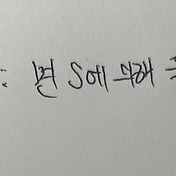 변 S에 의해